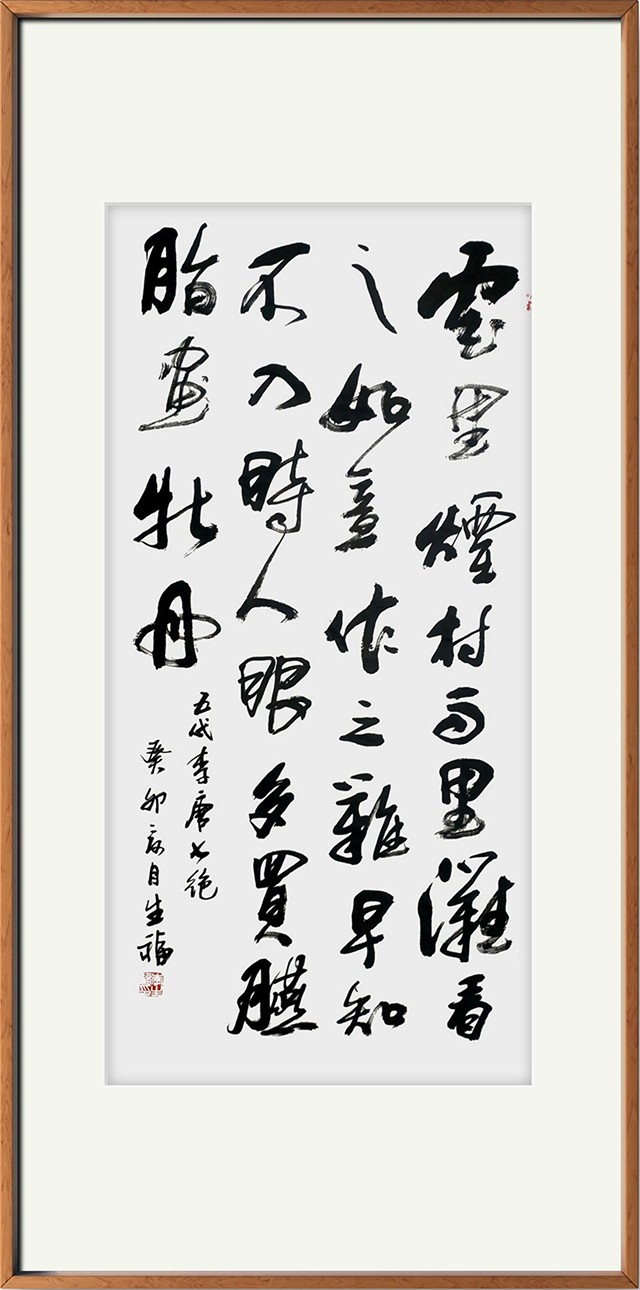 雲里煙村雨里灘看
之如意作之難早知
不入時人眼多買臙
脂畫牡丹
五代李唐七絕
癸卯自生福